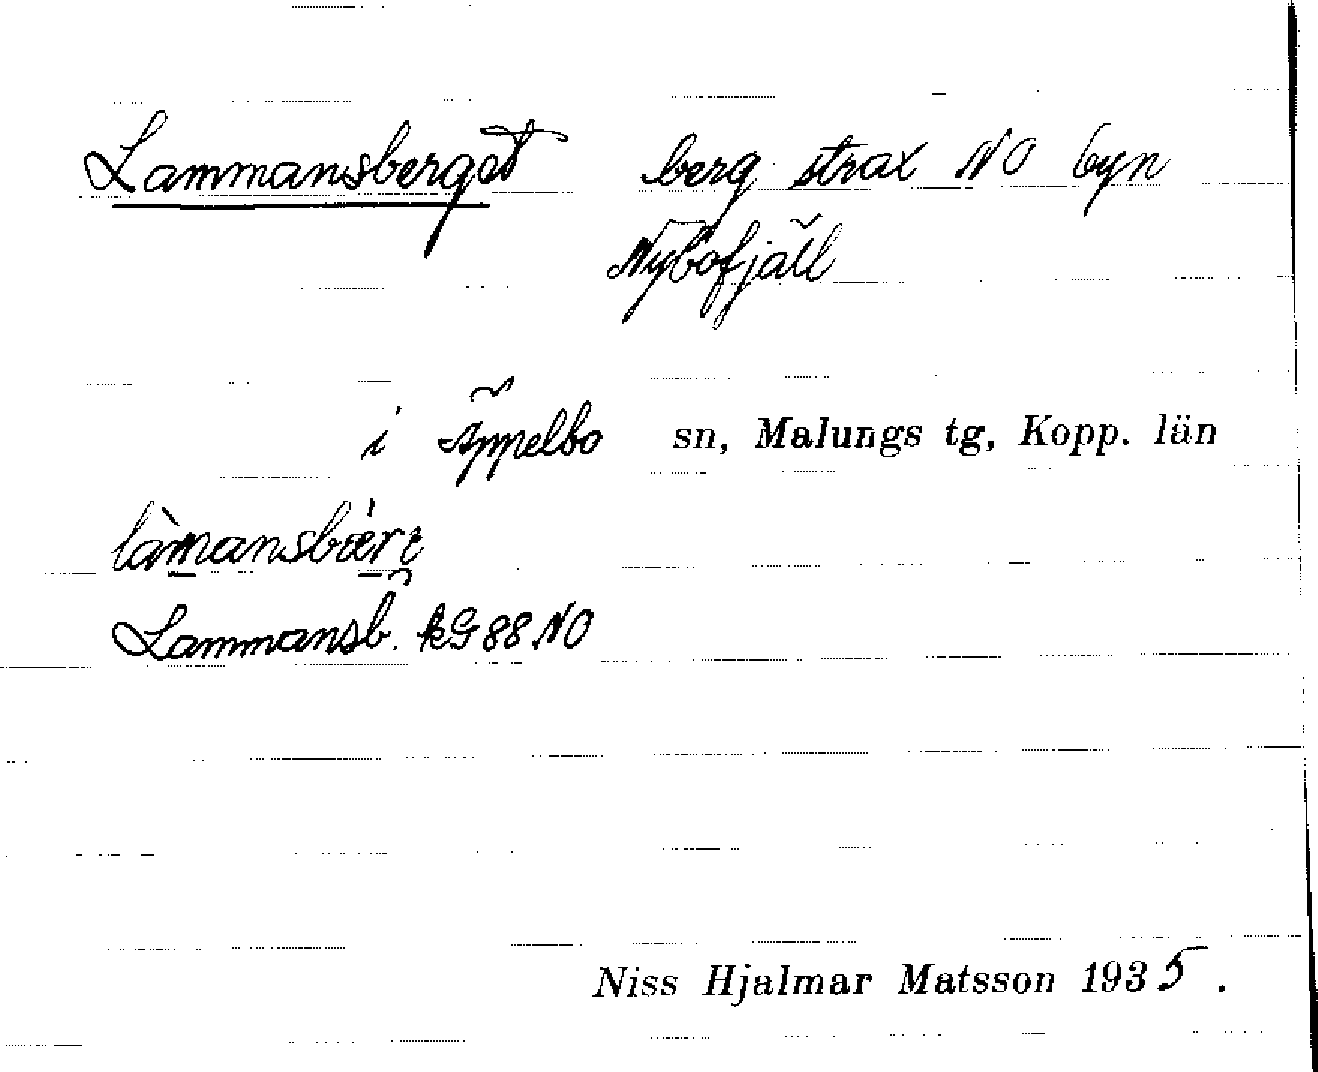 Lammansberget berg strax NO byn
Nybofjäll
i Äppelbo sn, Malungs tg, Kopp. län
làmansbær
Lammansb. kG 88 NO
Niss Hjalmar Matsson 1935.